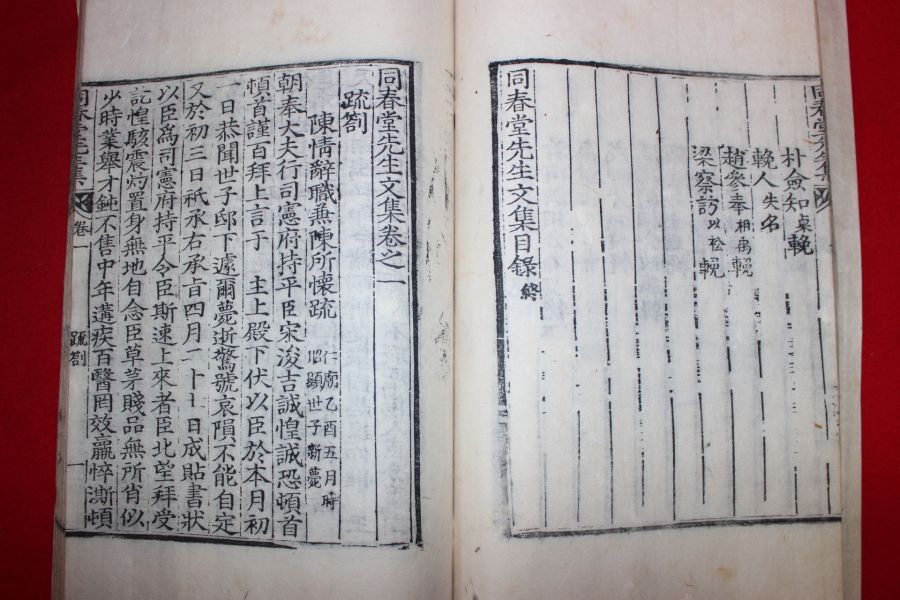 朴僉知輓
輓人失名
趙參奉相禹輓
梁察訪以松輓
同春堂先生文集目錄終
同春堂先生文集卷之一
疏劄
陳情辭職兼陳所懷疏 仁廟乙酉五月時
昭顯世子新薨
朝奉大夫行司憲府持平臣宋浚吉誠惶誠恐頓首
頓首謹百拜上言于 主上殿下伏以臣於本月初
一日恭聞世子邸下遽爾薨逝驚號哀隕不能自定
又於初三日祗承右承旨四月二十一日成貼書狀
以臣爲司憲府持平令臣斯速上來者臣北望拜受
記惶駭震灼置身無地自念臣草茅賤品無所肖似
少時業舉才鈍不售中年遘疾百醫罔效羸悴澌頓
同春堂先生集 卷一 疏劄 一